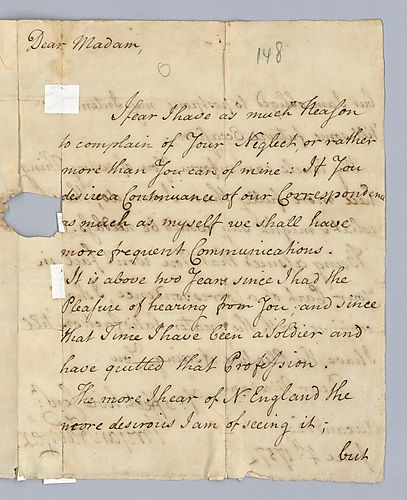 Dear Madam,
148
I fear I have as much Reason
to complain of Your Neglect or rather
more than You can of mine: If You
desire a Continuance of our Correspondence
as much as myself we shall have
more frequent Communications.
It is above two Years since I had the
Pleasure of hearing from You. and since
that Time I have been a Soldier and
have quitted that Profession.
The more I hear of N. England the
more desirous I am of seeing it;
but